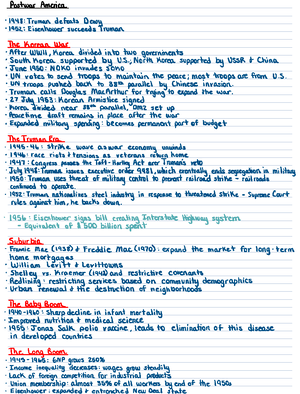 Postwar America
· 1948: Truman defeats Dewy
· 1952: Eisenhower succeeds Truman
The Korean War
· After WWII, Korea divided into two governments
· South Korea supported by U.S., North Korea supported by USSR & China
· June 1950: NOKO invades SOKO
· UN votes to send troops to maintain the peace; most troops are from U.S.
· UN troops pushed back to 38th parallel by Chinese invasion.
· Truman calls Douglas MacArthur for trying to expand the war.
· 27 July 1953: Korean Armistice signed
· Korea divided near 38th parallel, DMZ set up
· Peacetime draft remains in place after the war
· Expanded military spending: becomes permanent part of budget
The Truman Era
· 1945-46: Strike wave as war economy unwinds
· 1946: race riots & tensions as veterans return home
· 1947: Congress passes the Taft-Hartley Act over Truman's veto
· July 1948: Truman issues executive order 9981, which eventually ends segregation in military
· 1950: Truman uses threat of military control to prevent railroad strike - railroads
continued to operate.
· 1952: Truman nationalizes steel industry in response to threatened strike - Supreme Court
rules against him, he backs down.
· 1956: Eisenhower signs bill creating Interstate Highway system
- Equivalent of $500 billion spent
Suburbia
· Fannie Mae (1938) & Freddie Mac (1970): expand the market for long-term
home mortgages
· William Levitt & Levittowns
· Shelley vs. Kraemer (1948) and restrictive covenants
· Redlining: restricting services based on community demographics
· Urban renewal & the destruction of neighborhoods
The Baby Boom
· 1940-1960: Sharp decline in infant mortality
· Improved nutrition & medical science
· 1955: Jonas Salk polio vaccine, leads to elimination of this disease
in developed countries
The Long Boom
· 1945-1965: GNP grows 250%
· Income inequality decreases: wages grow steadily
· Lack of foreign competition for industrial products
· Union membership: almost 35% of all workers by end of the 1950s
· Eisenhower: expanded & entrenched New Deal state